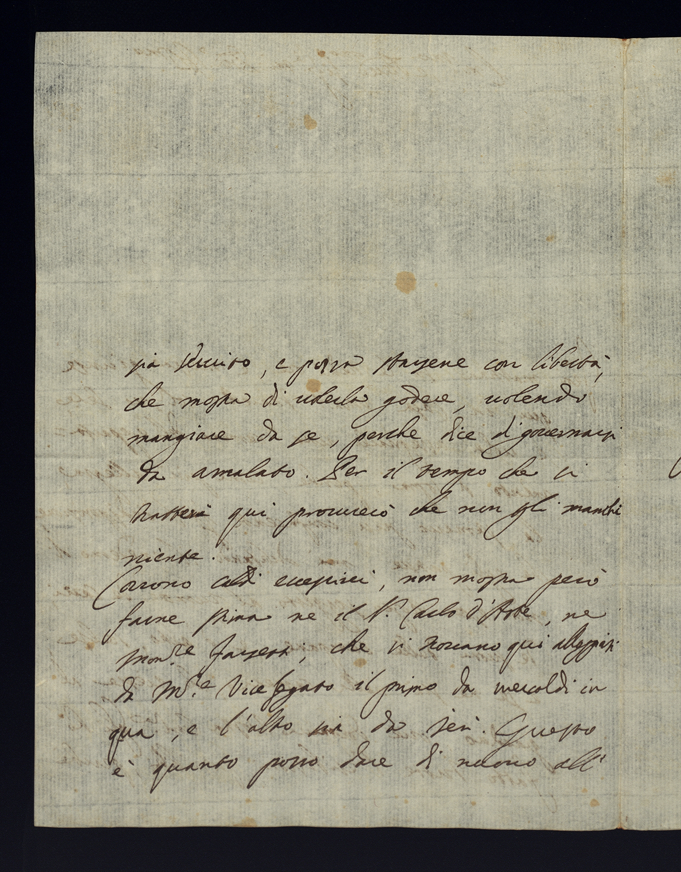 sia servito, e possa starsene con libertà,
che mostra di volerla godere, volendo
mangiare da se, perche dice di governarsi
da amalato. Per il tempo che si
tratterà qui procurerò che non gli manchi
niente.
Corrono caldi eccessivi, non mostra però
farne stima ne il S.r Carlo d'Aste, ne
Mons.re che si trovano qui
da M.re Vicelegato il primo da mercoldi in
qua, e l'altro sia da ieri. Questo
è quanto posso dare di nuovo all'